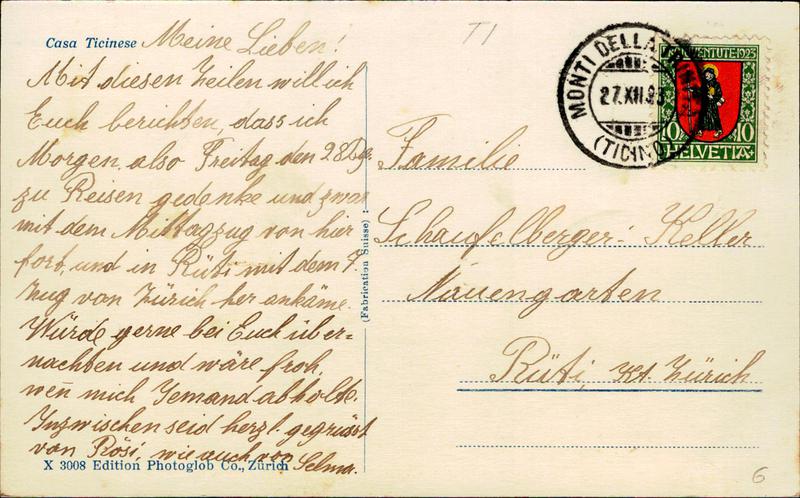 Casa Ticinese Meine Lieben!
Mit diesen Zeilen will ich
Euch berichten, dass ich
Morgen also Freitag den 28. Dez.
zu Reisen gedenke und zwar
mit dem Mittagzug von hier
fort, und in Rüti mit dem 7.
Zug von Zürich her ankäme.
Würde gerne bei Euch über-
nachten und wäre froh,
wen̄ mich Jemand abholde.
Inzwischen seid herzl. gegrüsst
von Rösi, wie auch von Selma.
X 3008 Edition Photoglob Co., Zürich
(Fabrication Suisse)
T1
MONTI DELLA
27.XII.23
(TICINO)
JUVENTUTE 1923
10 10
HELVETIA
Familie
Schaufelberger-Keller
Nauengarten
Rüti, Kt. Zürich
6